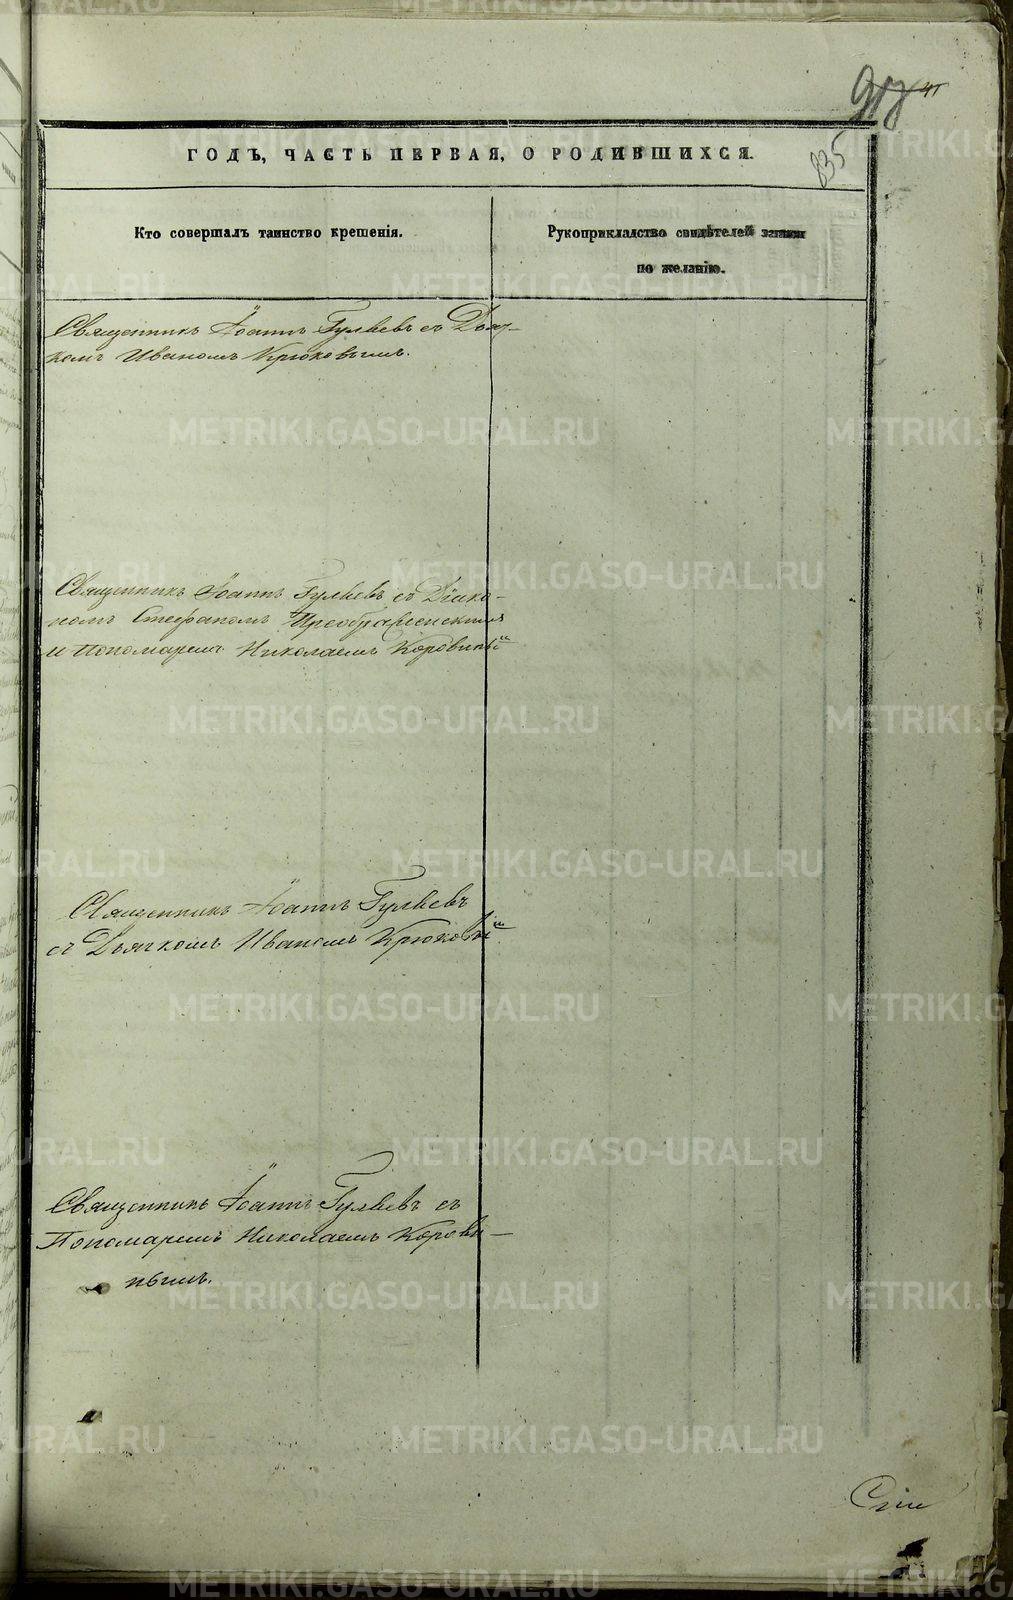 41
835
ГОДЪ, ЧАСТЬ ПЕРВАЯ, О РОДИВШИХСЯ.
Кто совершалъ таинство крещенія.
Рукоприкладство свидѣтелей записи
по желанію.
Священникъ Іоаннъ Гуляевъ съ Дьяч-
комъ Иваномъ Крюковымъ.
Священникъ Іоаннъ Гуляевъ съ Діако-
номъ Стефаномъ Преображенскимъ
и Пономаремъ Николаемъ Коровинымъ
Священникъ Іоаннъ Гуляевъ
съ Дьячкомъ Иваномъ Крюковым
Священникъ Іоаннъ Гуляевъ съ
Пономаремъ Николаемъ Корови-
нымъ.
Сіи
METRIKI.GASO-URAL.RU